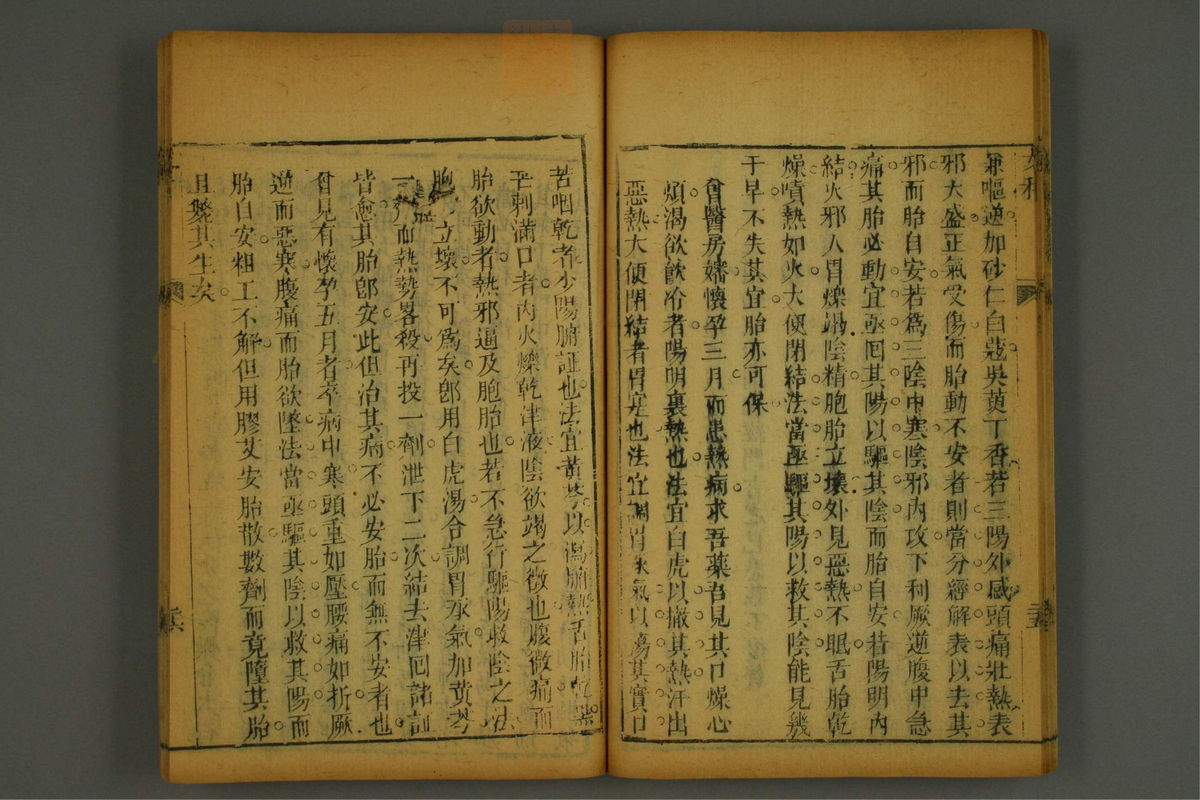 兼嘔逆加砂仁白蔻吳萸丁香若三陽外感頭痛壯熱表
邪大盛正氣受傷而胎動不安者則當分經解表以去其
邪而胎自安若爲三陰中寒陰邪內攻下利厥逆腹中急
痛其胎必動宜亟囘其陽以驅其陰而胎自安若陽明內
結火邪入胃爍竭陰精胞胎立壞外見惡熱不眠舌胎乾
燥噴熱如火大便閉結法當亟驅其陽以救其陰能見幾
于早不失其宜胎亦可保
曾醫房嬸懷孕三月而患熱病求吾藥吾見其口燥心
煩渴欲飮冷者陽明裏熱也法宜白虎以撤其熱汗出
惡熱大便閉結者胃實也法宜調胃承氣以蕩其實口
苦咽乾者少陽腑証也法宜黃芩以瀉腑熱舌胎乾黑
芒刺滿口者內火爍乾津液陰欲竭之徵也腹微痛而
胎欲動者熱邪逼及胞胎也若不急行驅陽救陰之法
胞立壞不可爲矣卽用白虎湯合調胃承氣加黃芩
一劑而熱勢畧殺再投一劑泄下二次結去津囘諸証
皆愈其胎卽安此但治其病不必安胎而無不安者也
曾見有懷孕五月者卒病中寒頭重如壓腰痛如折厥
逆而惡寒腹痛而胎欲墜法當亟驅其陰以救其陽而
胎自安粗工不解但用膠艾安胎散數劑而竟墮其胎
且斃其生矣
女科
三五
三六